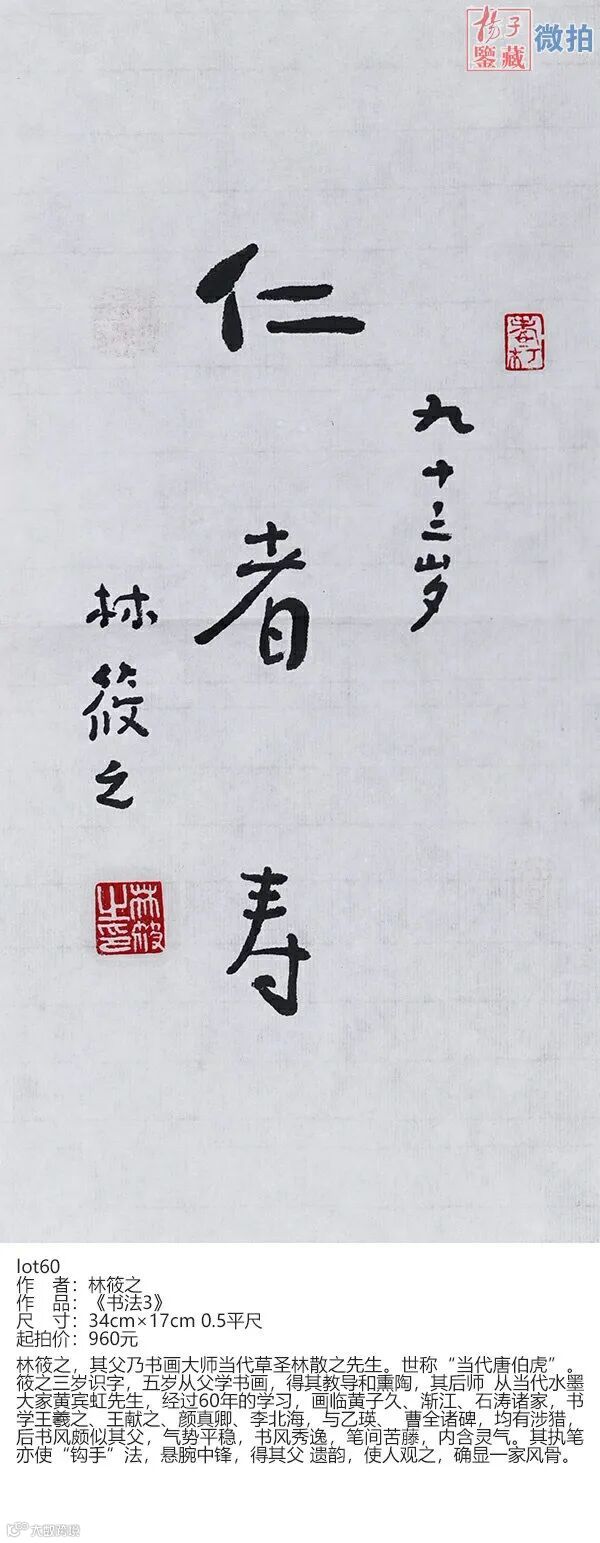 揚子
鑒藏
微拍
九十三岁
仁者寿
林筱之
林筱之印
lot60
作 者：林筱之
作 品：《书法3》
尺 寸：34cm×17cm 0.5平尺
起拍价：960元
林筱之，其父乃书画大师当代草圣林散之先生。世称“当代唐伯虎”。
筱之三岁识字，五岁从父学书画，得其教导和熏陶，其后师 从当代水墨
大家黄宾虹先生，经过60年的学习，画临黄子久、渐江、石涛诸家，书
学王羲之、王献之、颜真卿、李北海，与乙瑛、 曹全诸碑，均有涉猎，
后书风颇似其父，气势平稳，书风秀逸，笔间苦藤，内含灵气。其执笔
亦使“钩手”法，悬腕中锋，得其父 遗韵，使人观之，确显一家风骨。
大数跨境